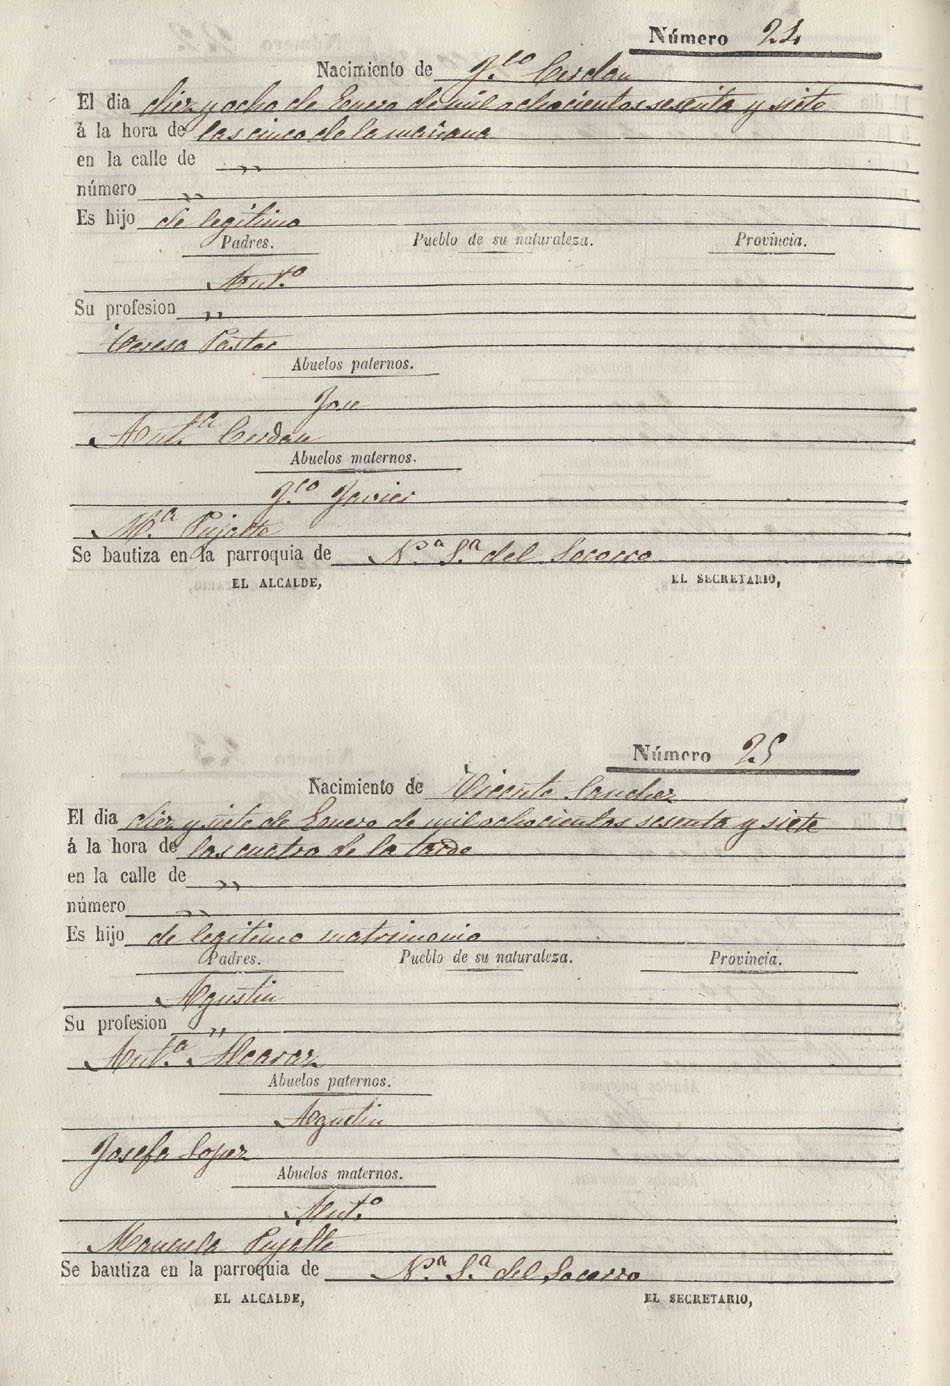 Número 24
Nacimiento de Fco Cerdan
El dia diez y ocho de Enero de mil ochocientos sesenta y siete
á la hora de las cinco de la mañana
en la calle de "
número "
Es hijo de legitimo
Padres. Pueblo de su naturaleza. Provincia.
Anto
Su profesion "
Teresa Pastor
Abuelos paternos.
Jose
Anta Cerdan
Abuelos maternos.
Fco Javier
Ma Pujalte
Se bautiza en la parroquia de Na Sa del Socorro
EL ALCALDE, EL SECRETARIO,
Número 25
Nacimiento de Vicente Sanchez
El dia diez y siete de Enero de mil ochocientos sesenta y siete
á la hora de las cuatro de la tarde
en la calle de "
número "
Es hijo de legitimo matrimonio
Padres. Pueblo de su naturaleza. Provincia.
Agustin
Su profesion "
Anta Alcaraz
Abuelos paternos.
Agustin
Josefa Lopez
Abuelos maternos.
Anto
Manuela Pujalte
Se bautiza en la parroquia de Na Sa del Socorro
EL ALCALDE, EL SECRETARIO,